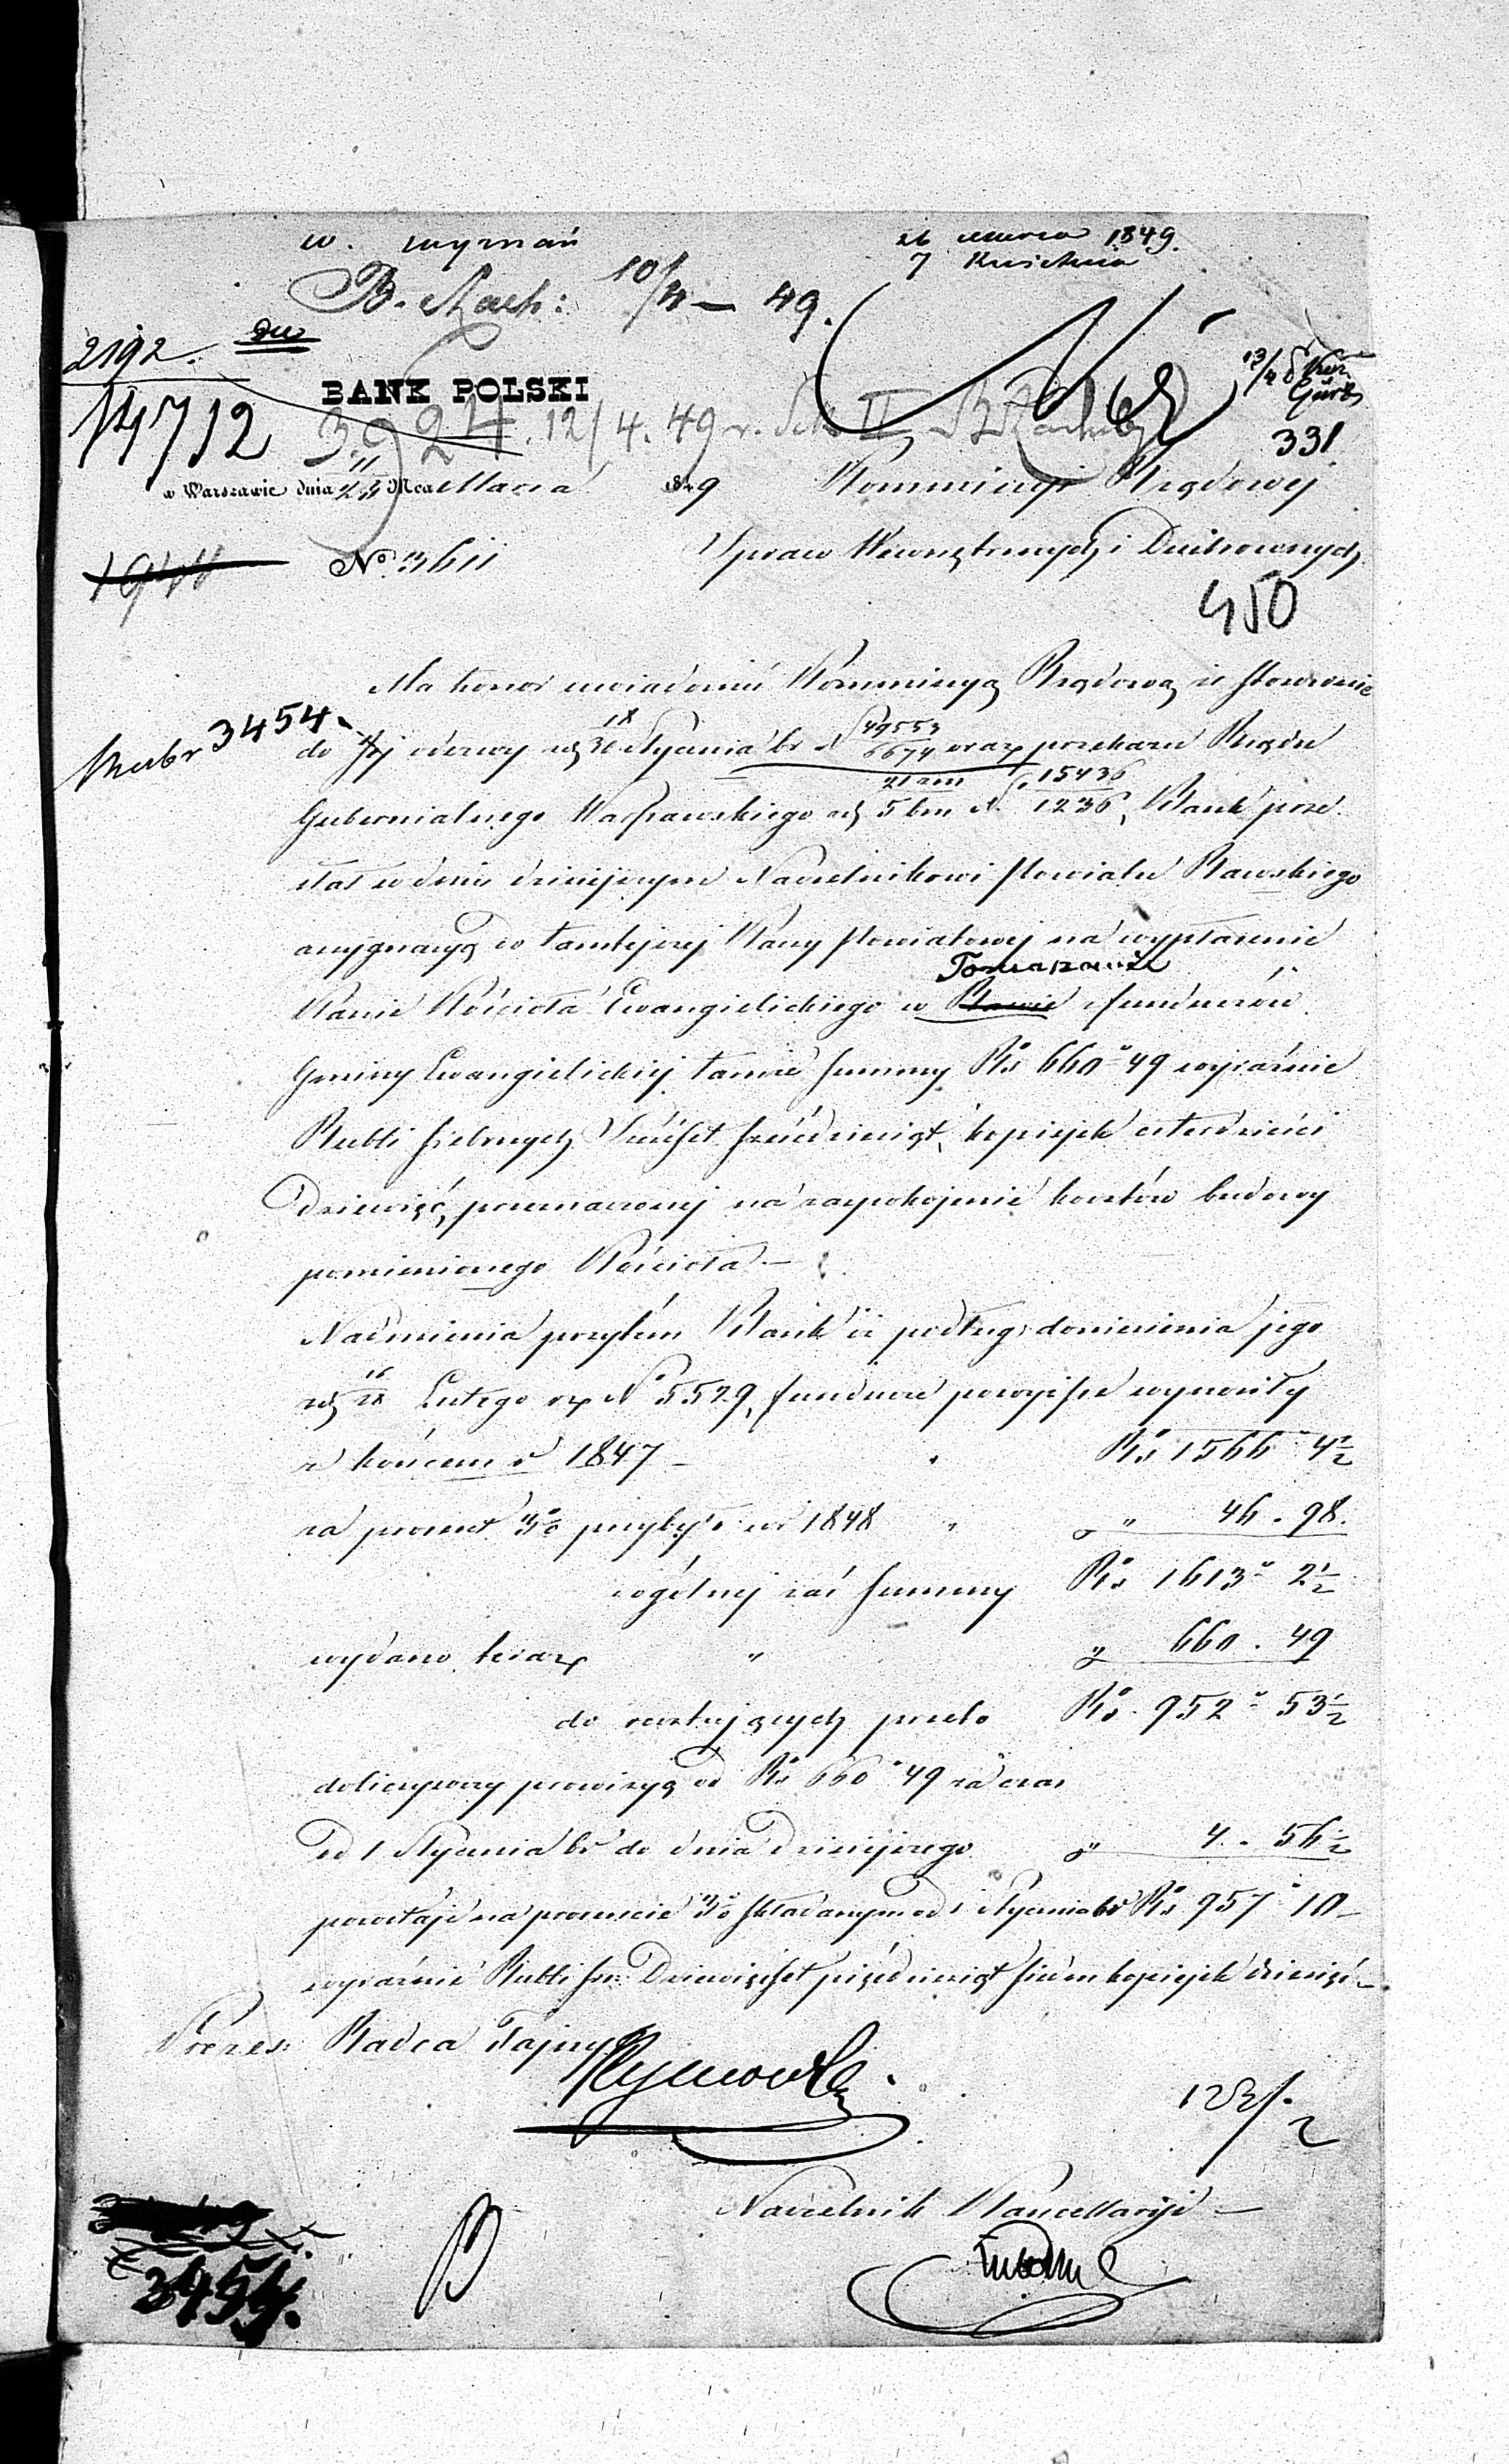 w. wyznań
26 Marca 1849.
7 Kwietnia
B. Rach: 10/4 — 49.
2192.
14712
BANK POLSKI
3924. 12/4. 49 r. Sek II
331
w Warszawie dnia 11/23 Mca Marca 1849
Kommissyi Rządowej
No. 3611
Spraw Wewnętrznych i Duchownych
450
Ma honor uwiadomić Kommissyą Rządową iż stosownie
3454.
do Jéj odezwy z d. 18/30 Stycznia br N 49553/6674 oraz przekazu Rządu
Gubernialnego Warszawskiego z d. 21 zm/5 bm N. 15436/1236, Bank prze
słał w dniu dzisiejszym Naczelnikowi Powiatu Rawskiego
assygnacyą do tamtejszej Kassy Powiatowej na wypłacenie
Tomaszowie
Kassie Kościoła Ewangielickiego w Rawie z funduszów
Gminy Ewangielickiéj tamże summy Rs 660 49 wyraźnie
Rubli srebrnych Sześćset sześćdziesiąt, kopiejek czterdzieści
Dziewięć, przeznaczonej na zaspokojenie kosztów budowy
pomienionego Kościoła —
Nadmienia przytém Bank iż podług doniesienia jego
z d. 16/28 Lutego rz N 5529, fundusze powyższe wynosiły
z końcem r. 1847 — Rs 1566 4½
za procent 3% przybyło w r 1848 " " 46. 98.
z ogólnéj zaś summy Rs 1613 2½
wydano teraz " " 660. 49
do resztujących przeto Rs. 952 53½
doliczywszy prowizyą od Rs 660 49 za czas
Od 1 Stycznia br do dnia Dzisiejszego " 4. 56½
pozostaje na procencie 3% składanym od 1 Stycznia br Rs 957 10 —
wyraźnie Rubli sr: Dziewięćset pięćdziesiąt siedm kopiejek dziesięć —
Prezes: Radca Tajny
123/2
Naczelnik Kancellaryi —
3454.